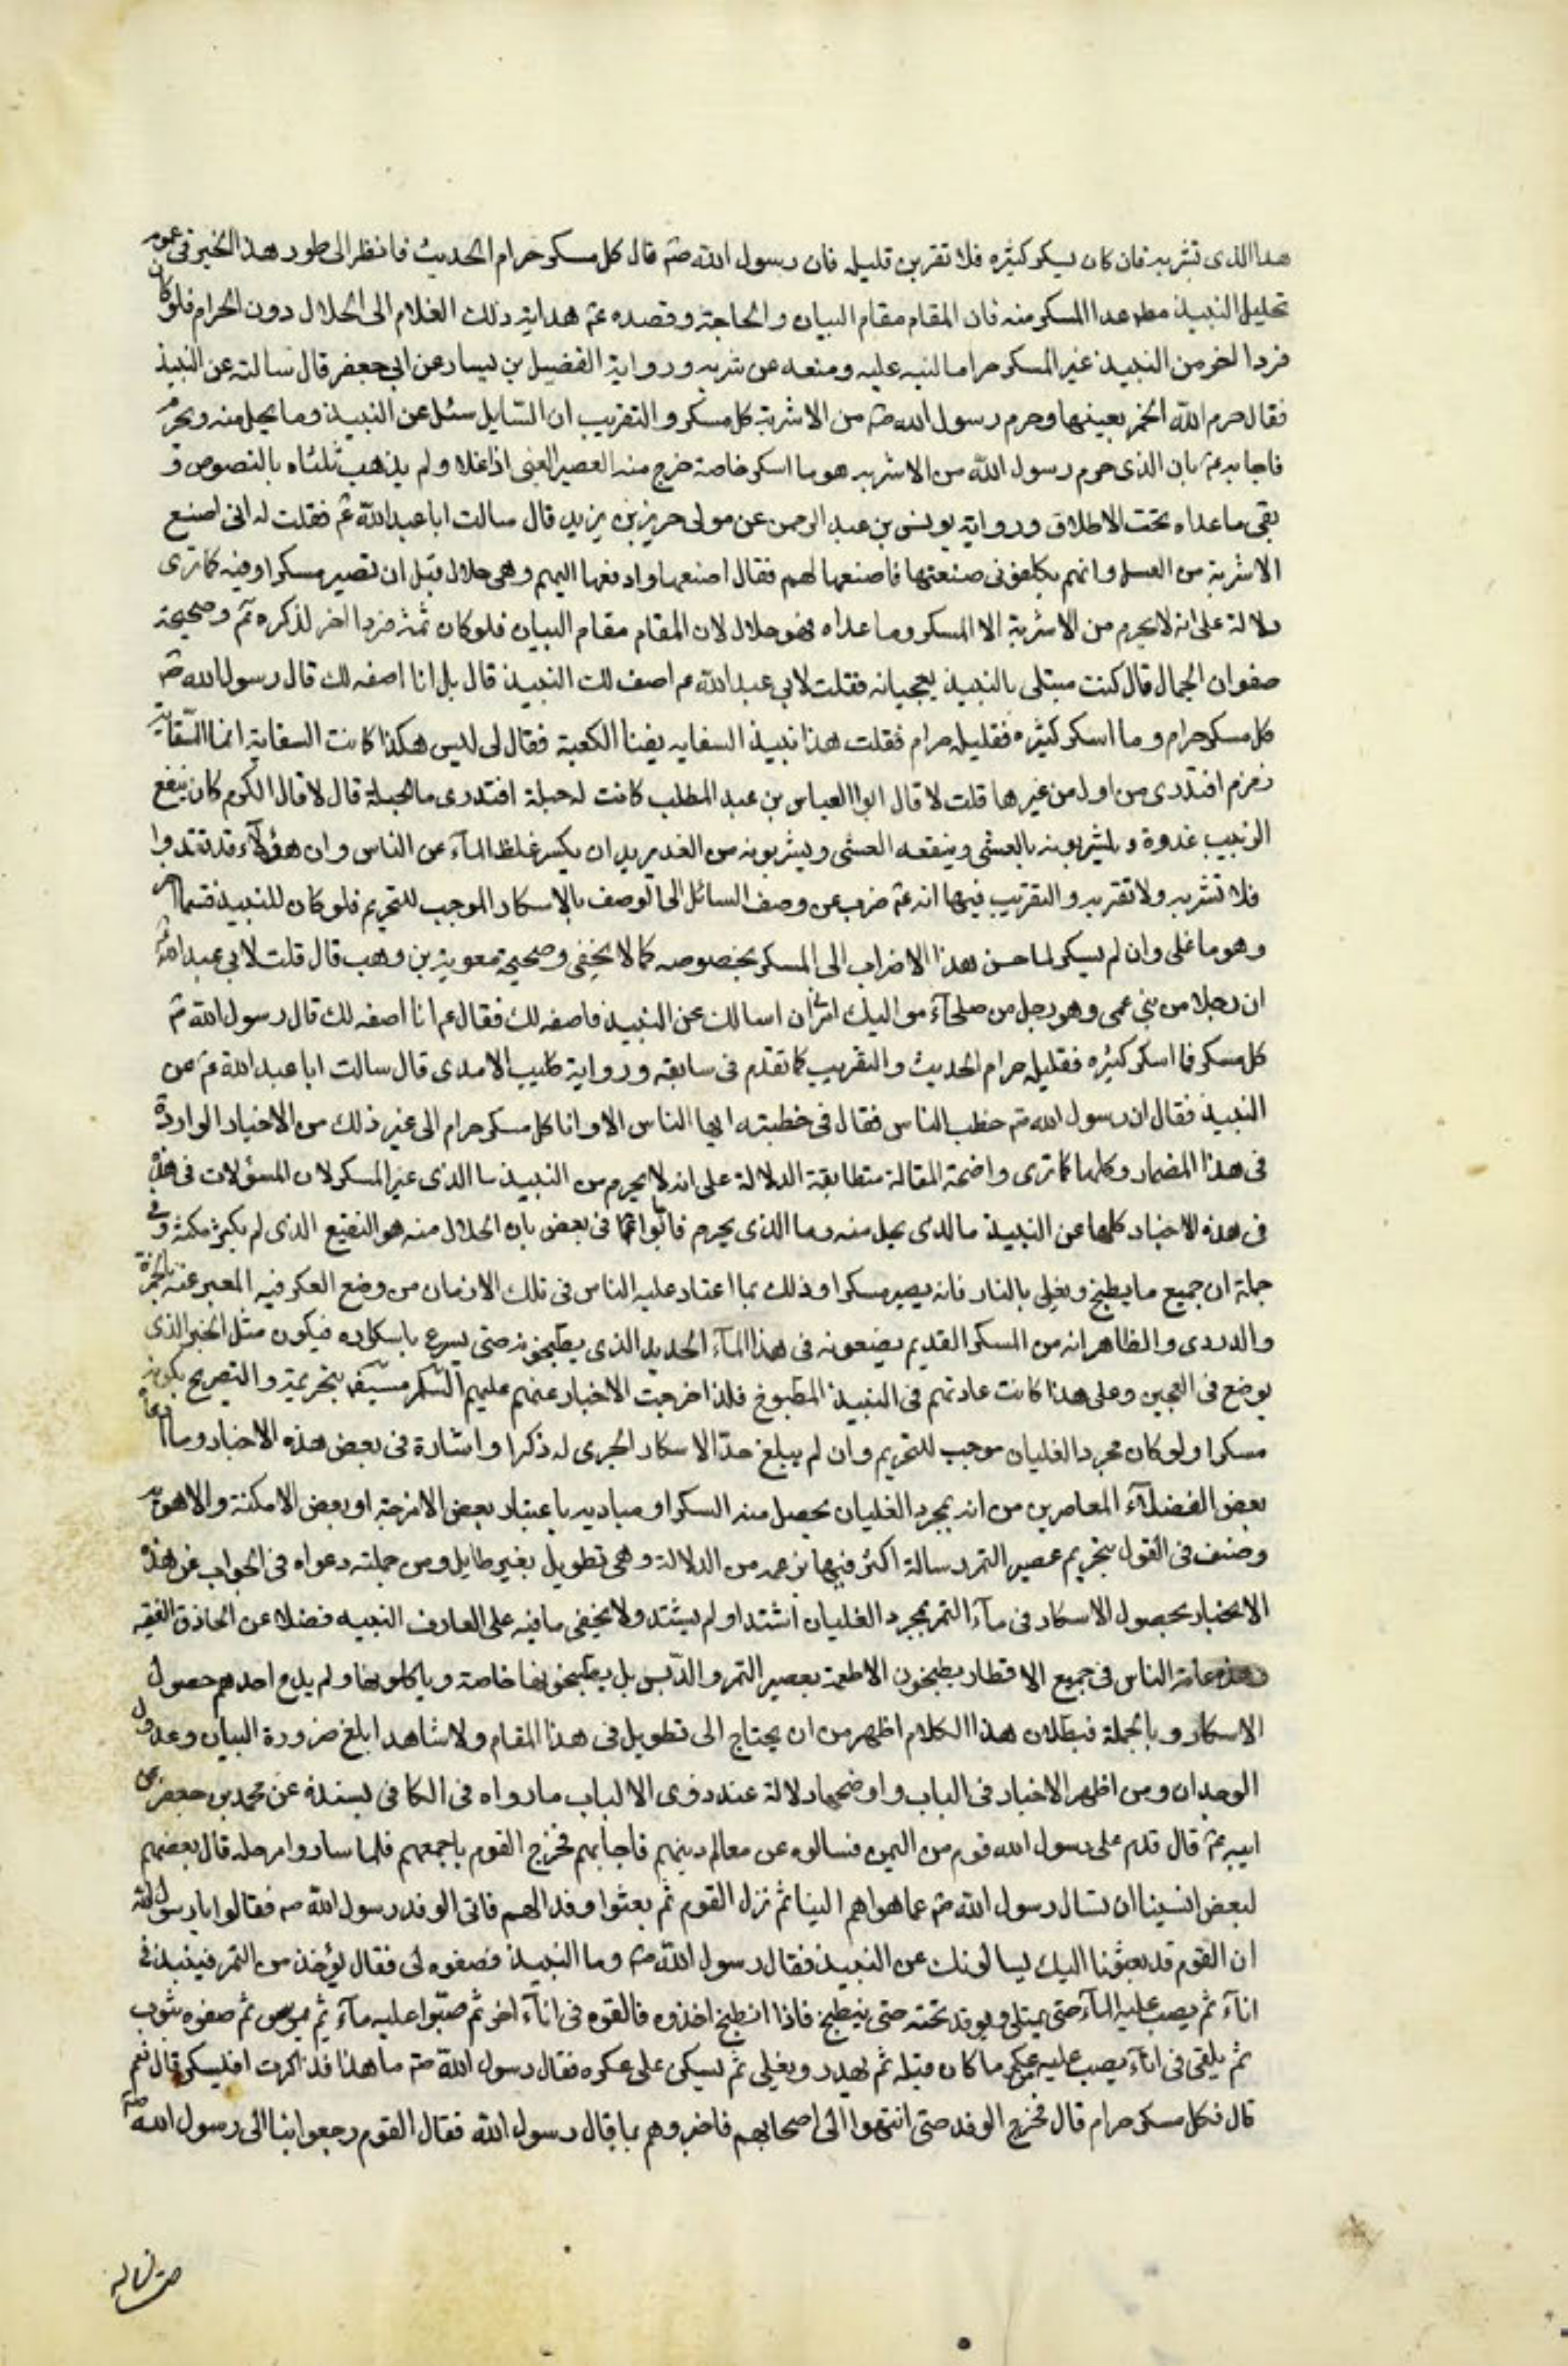 هذا الذى تشربه فان كان يسكر كثيره فلا تقربن قليله فان رسول الله صم قال كل مسكر حرام الحديث فانظر الى طور هذا الخبر فى عموم
تحليل النبيذ عدا المسكر منه فان المقام مقام البيان والحاجة وقصده عم هداية ذلك الغلام الى الحلال دون الحرام فلو كان
فردا اخر من النبيذ غير المسكر حراما لنبه عليه ومنعه عن شربه ورواية الفضيل بن يسار عن ابى جعفر قال سالته عن النبيذ
فقال حرم الله الخمر بعينها وحرم رسول الله صم من الاشربة كل مسكر والتقريب ان السّايل سئل عن النبيذ وما يحل منه ويحرم
فاجابه عم بان الذى حرم رسول الله من الاشربه هو ما اسكر خاصة خرج منه العصير العنبى اذا غلا ولم يذهب ثلثاه بالنصوص و
بقى ماعداه تحت الاطلاق ورواية يونس بن عبد الرحمن عن مولى حريز بن يزيد قال سالت ابا عبد الله عم فقلت له انى اصنع
الاشربة من العسل وانهم يكلفونى صنعتها فاصنعها لهم فقال اصنعها وادفعها اليهم وهى حلال قبل ان تصير مسكرا وفيه كما ترى
دلالة على انه لا يحرم من الاشربة الا المسكر وما عداه فهو حلال لان المقام مقام البيان فلو كان ثمة فردا اخر لذكره ثم وصحيحة
صفوان الجمال قال كنت مبتلى بالنبيذ معجبا به فقلت لابى عبد الله عم اصف لك النبيذ قال بل انا اصفه لك قال رسول الله صم
كل مسكر حرام وما اسكر كثيره فقليله حرام فقلت هذا نبيذ السقايه بفنا الكعبة فقال لى ليس هكذا كانت السقاية انما السّقاية
زمزم افتدرى من اول من غيرها قلت لا قال ابوا العباس بن عبد المطلب كانت له حبلة افتدرى ما الحبلة قال لا قال الكرم كان ينقع
الزبيب غدوة ويشربونه بالعشى وينقعه العشى ويشربونه من الغد يريد ان يكسر غلظ المآء عن الناس وان هؤلآء قد تعتدوا
فلا تشربه ولا تقربه والتقريب فيها انه عم ضرب عن وصف السائل الى الوصف بالاسكار الموجب للتحريم فلو كان للنبيذ قسما اخر
وهو ما غلى وان لم يسكر لما حسن هذا الاضراب الى المسكر بخصوصه كما لا يخفى وصحيحة معوية بن وهب قال قلت لابى عبد الله عم
ان رجلا من بنى عمى وهو رجل من صلحآء مواليك امرنى ان اسالك عن النبيذ فاصفه لك فقال عم انا اصفه لك قال رسول الله صم
كل مسكر فما اسكر كثيره فقليله حرام الحديث والتقريب كما تقدم فى سابقه ورواية كليب الاسدى قال سالت ابا عبد الله عم عن
النبيذ فقال ان رسول الله صم خطب الناس فقال فى خطبته ايها الناس الا وانا كل مسكر حرام الى غير ذلك من الاخبار الواردة
فى هذا المضمار وكلها كما ترى واضحة المقالة متطابقة الدلالة على انه لا يحرم من النبيذ سا الذى غير المسكر لان المسؤلات فى هذه
فى هذه الاخبار كلها عن النبيذ ما لذى يحل منه وما الذى يحرم فاتوا عم فى بعض بان الحلال منه هو النقيع الذى لم يكثر مكثه وفى
جملة ان جميع ما يطبخ ويغلى بالنار فانه يصير مسكرا وذلك بما اعتاد عليه الناس فى تلك الازمان من وضع العكر فيه المعبر عنه بالخمرة
والدردى والظاهر انه من المسكر القديم يضعونه فى هذا المآء الجديد الذى يطبخونه حتى يسرع باسكاره فيكون مثل الخمير الذى
يوضع فى العجين وعلى هذا كانت عادتهم فى النبيذ المطبوخ فلذا خرجت الاخبار عنهم عليهم السّلم بتحريمه والتصريح بكونه
مسكرا ولو كان مجرد الغليان موجب للتحريم وان لم يبلغ حدّ الاسكار لجرى له ذكرا واشارة فى بعض هذه الاخبار وما ادعا
بعض الفضلآء المعاصرين من انه بمجرد الغليان يحصل منه السكر او مباديه باعتبار بعض الامزجة او بعض الامكنة والاهوية
وصنف فى القول بتحريم عصير التمر رسالة اكثر فيها بزعمه من الدلالة وهى تطويل بغير طايل ومن جملته دعواه فى الجواب عن هذه
الاخبار بحصول الاسكار فى مآء التمر بمجرد الغليان اشتد او لم يشتد ولا يخفى ما فيه على العارف النبيه فضلا عن الحاذق الفقيه
وهذه عامة الناس فى جميع الاقطار يطبخون الاطعمة بعصير التمر والدّبس بل يطبخونها خاصة وياكلونها ولم يدع احدهم حصول
الاسكار وبالجملة فبطلان هذا الكلام اظهر من ان يحتاج الى تطويل فى هذا المقام ولا شاهد ابلغ ضرورة البيان وعدول
الوجدان ومن اظهر الاخبار فى الباب واوضحها دلالة عند ذوى الالباب مارواه فى الكافى بسنده عن محمد بن جعفر عن
ابيه عم قال قدم على رسول الله قوم من اليمن فسالوه عن معالم دينهم فاجابهم فخرج القوم باجمعهم فلما ساروا مرحله قال بعضهم
لبعض انسينا ان نسال رسول الله صم عما هو اهم الينا ثم نزل القوم ثم بعثوا وفدا لهم فاتى الوفد رسول الله صم فقالوا يا رسول الله
ان القوم قد بعثونا اليك يسالونك عن النبيذ فقال رسول الله صم وما النبيذ فصفوه لى فقال يؤخذ من التمر فينبذ فى
انآء ثم يصب عليه المآء حتى يمتلى ويوقد تحته حتى ينطبخ فاذا انطبخ اخذوه فالقوه فى انآء اخر ثم صبّوا عليه مآء ثم يمرس ثم صفوه بثوب
ثم يلقى فى انآء يصب عليه من عكر ما كان قبله ثم يهدر ويغلى ثم يسكن على عكره فقال رسول الله صم ما هذا قد اكثرت افيسكر قال نعم
قال فكل مسكر حرام قال فخرج الوفد حتى انتهوا الى اصحابهم فاخبروهم بما قال رسول الله فقال القوم رجعوا بنا الى رسول الله صم